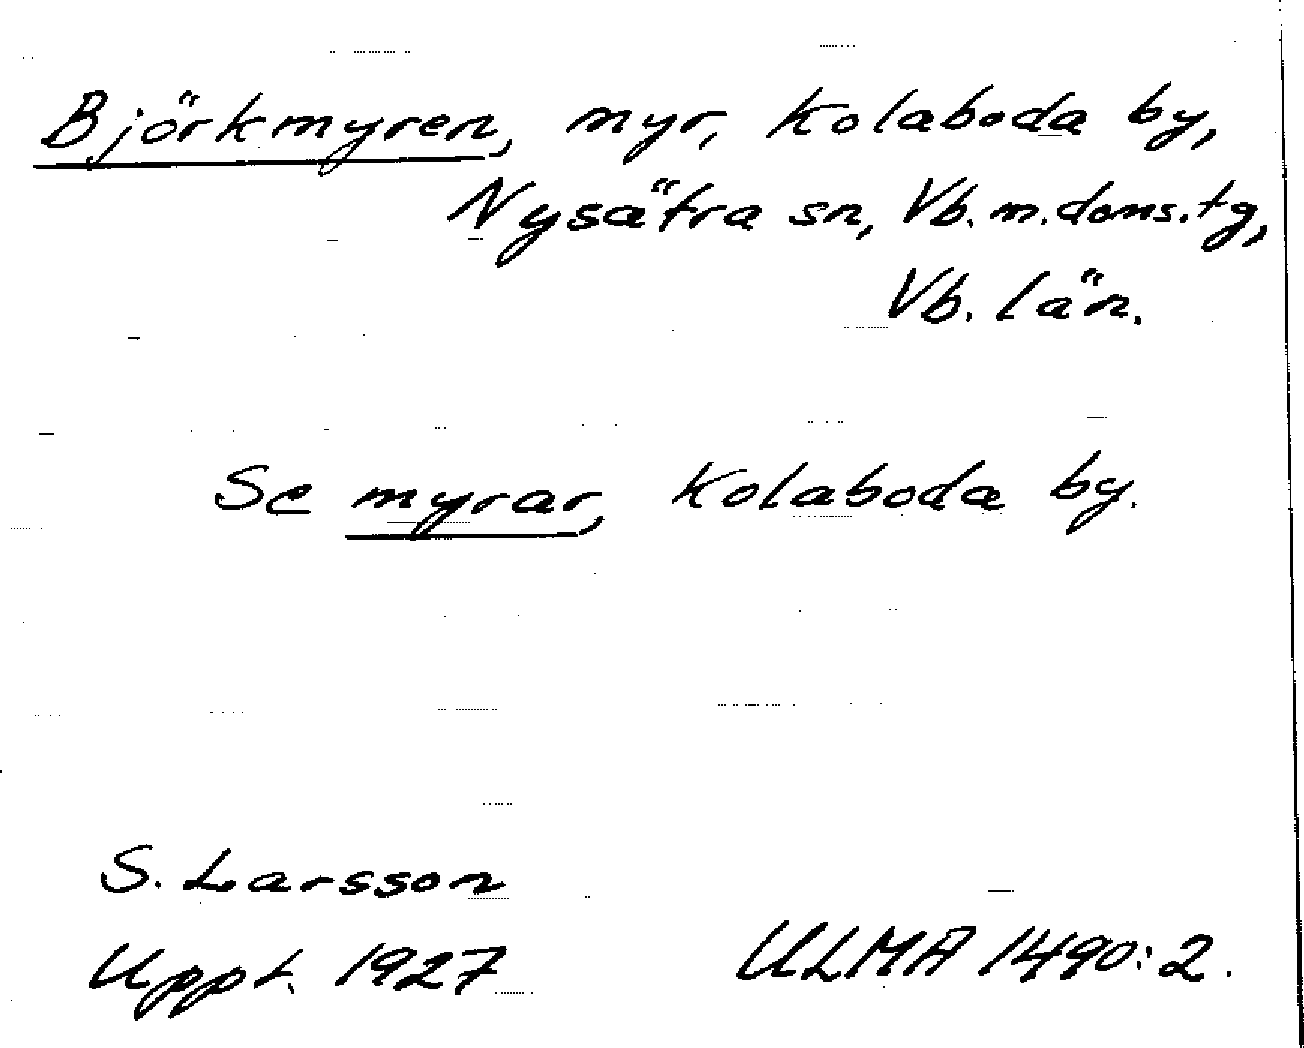 Björkmyren, myr, Kolaboda by,
Nysätra sn, Vb. m. doms. tg,
Vb. län.
Se myrar, Kolaboda by.
S. Larsson
Uppt. 1927
ULMA 1490:2.